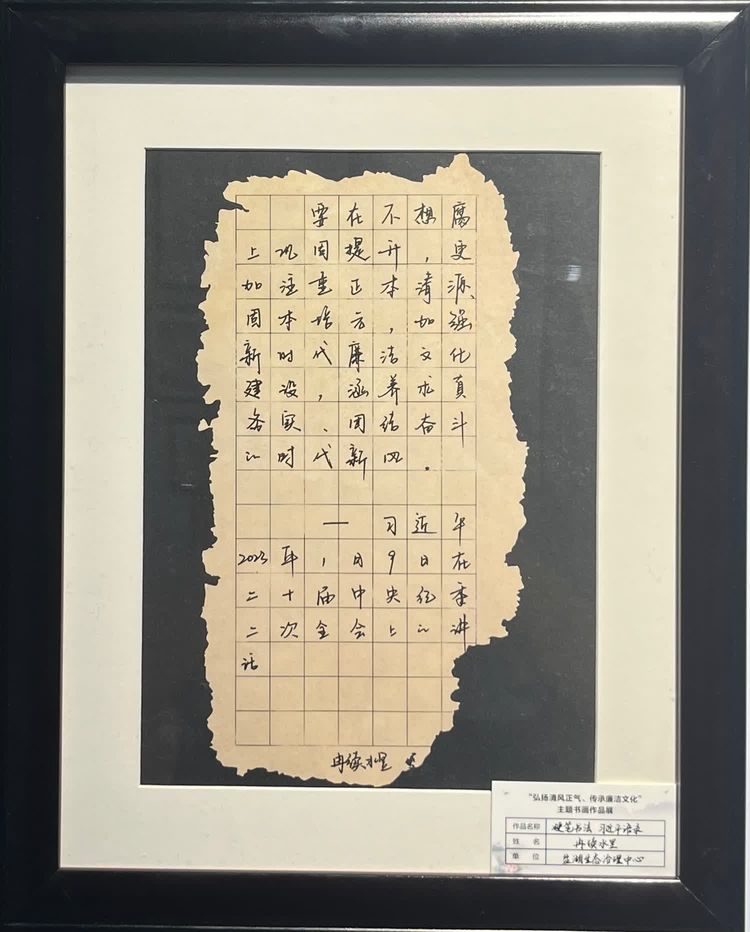 要在不想腐
上巩固提升，更
加注重正本清源、
固本培元，加强
新时代廉洁文化
建设，涵养求真
务实、团结奋斗
的时代新风。
—习近平
2023年1月9日在
二十届中央纪委
二次全会上的讲
话
“弘扬清风正气、传承廉洁文化”
主题书画作品展
作品名称 硬笔书法 习近平语录
姓 名
单 位 盐湖生态治理中心